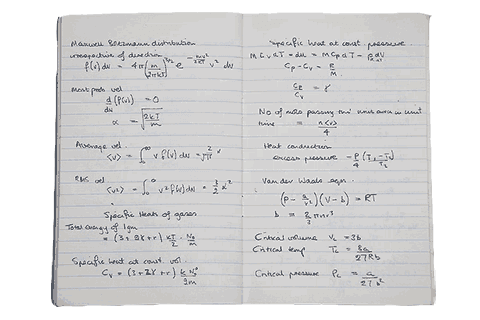 Maxwell Boltzmann distribution
irrespective of direction
f(v) dv = 4π (m/2πkT)^3/2 e^-mv²/2kT v² dv
Most prob vel
d/dv (f(v)) = 0
α = √(2kT/m)
Average vel.
⟨v⟩ = ∫₀^∞ v f(v) dv = 2/√π α
RMS vel
⟨v²⟩ = ∫₀^∞ v² f(v) dv = 3/2 α²
Specific Heats of gases
Total energy of 1gm
= (3 + 2γ + r) kT/2 · N₀/m
Specific heat at const. vol.
Cv = (3 + 2γ + r) k N₀/2m
Specific heat at const pressure.
Cp - Cv = R/M
Cp/Cv = γ
No of mols passing thro' unit area in unit
time = n⟨v⟩/4
Heat conduction
excess pressure
Van der Waals eqn.
(P - a/v²)(V - b) = RT
Critical volume Vc = 3b
Critical temp Tc = 8a/27Rb
Critical pressure Pc = a/27b²